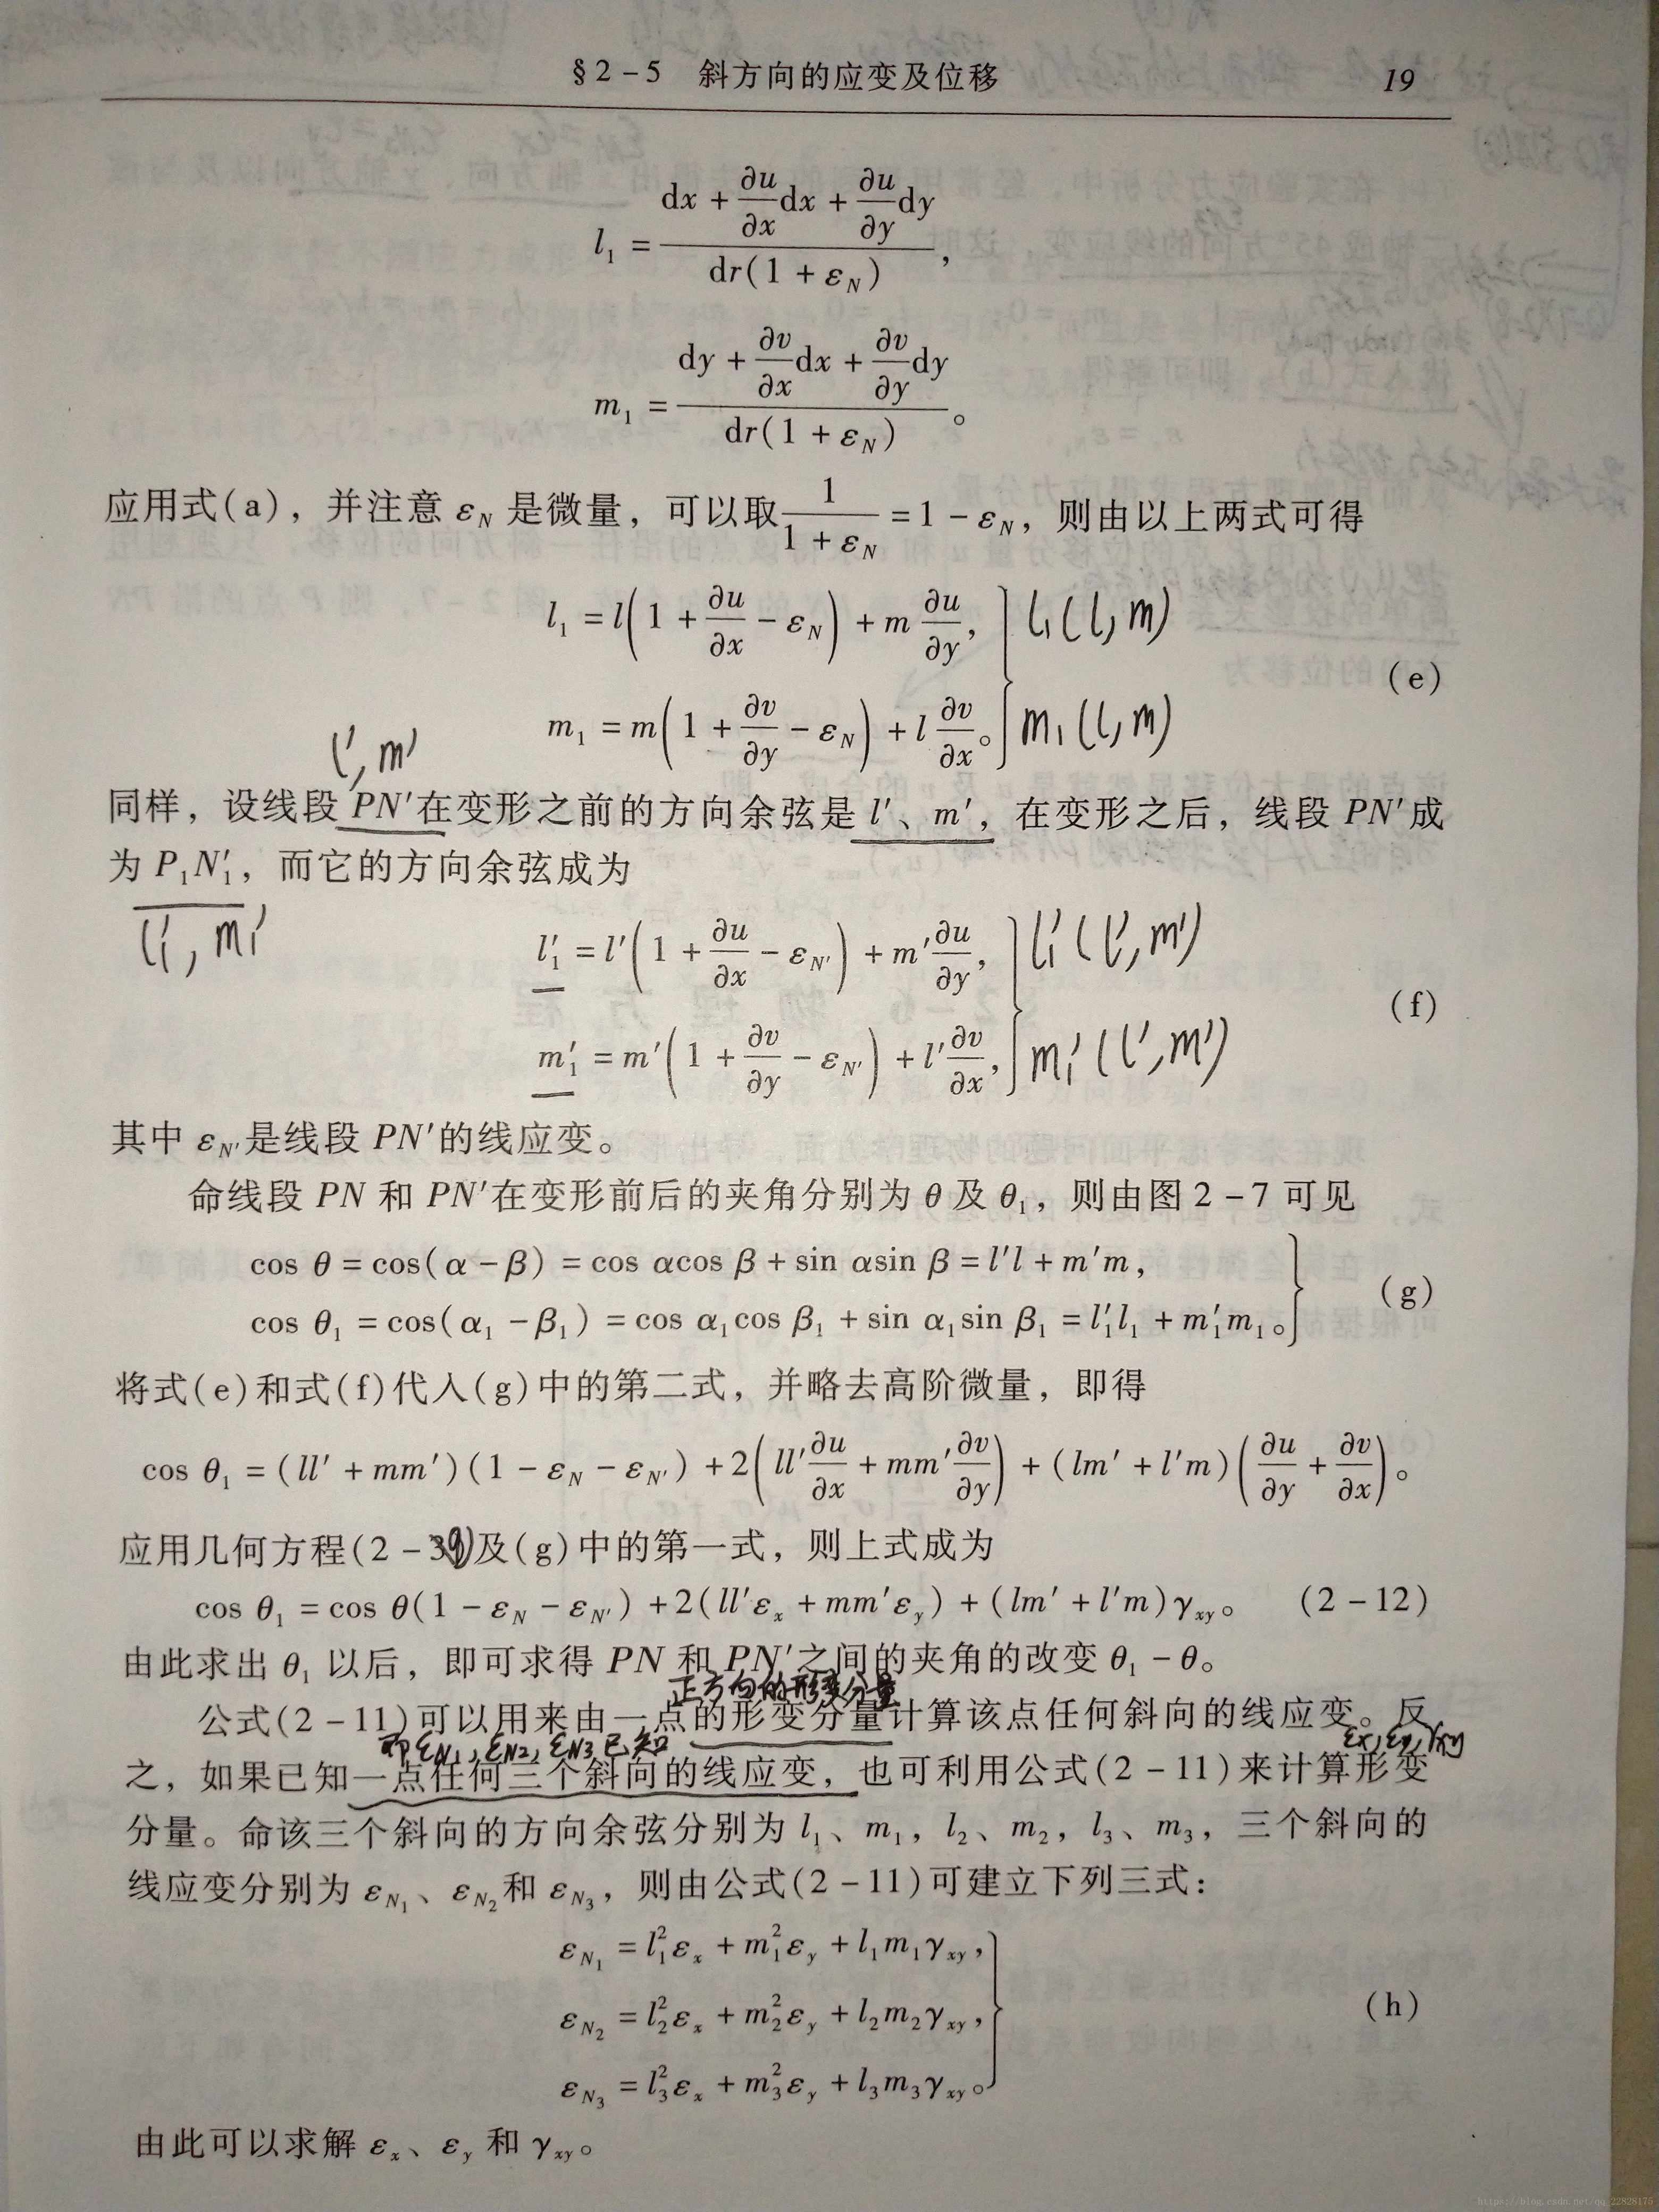 §2-5 斜方向的应变及位移 19
l₁ = (dx + ∂u/∂x dx + ∂u/∂y dy) / (dr(1 + ε_N)),
m₁ = (dy + ∂v/∂x dx + ∂v/∂y dy) / (dr(1 + ε_N))。
应用式(a)，并注意 ε_N 是微量，可以取 1/(1 + ε_N) = 1 - ε_N，则由以上两式可得
l₁ = l(1 + ∂u/∂x - ε_N) + m ∂u/∂y, l₁(l, m)
(e)
m₁ = m(1 + ∂v/∂y - ε_N) + l ∂v/∂x。 m₁(l, m)
l′, m′
同样，设线段 PN′在变形之前的方向余弦是 l′、m′，在变形之后，线段 PN′成
为 P₁N′₁，而它的方向余弦成为
l′₁, m′₁
l′₁ = l′(1 + ∂u/∂x - ε_N′) + m′ ∂u/∂y, l′₁(l′, m′)
(f)
m′₁ = m′(1 + ∂v/∂y - ε_N′) + l′ ∂v/∂x, m′₁(l′, m′)
其中 ε_N′是线段 PN′的线应变。
命线段 PN 和 PN′在变形前后的夹角分别为 θ 及 θ₁，则由图 2-7 可见
cos θ = cos(α - β) = cos αcos β + sin αsin β = l′l + m′m,
(g)
cos θ₁ = cos(α₁ - β₁) = cos α₁cos β₁ + sin α₁sin β₁ = l′₁l₁ + m′₁m₁。
将式(e)和式(f)代入(g)中的第二式，并略去高阶微量，即得
cos θ₁ = (ll′ + mm′)(1 - ε_N - ε_N′) + 2(ll′ ∂u/∂x + mm′ ∂v/∂y) + (lm′ + l′m)(∂u/∂y + ∂v/∂x)。
应用几何方程(2-9)及(g)中的第一式，则上式成为
cos θ₁ = cos θ(1 - ε_N - ε_N′) + 2(ll′ε_x + mm′ε_y) + (lm′ + l′m)γ_xy。 (2-12)
由此求出 θ₁ 以后，即可求得 PN 和 PN′之间的夹角的改变 θ₁ - θ。
正方向的形变分量
公式(2-11)可以用来由一点的形变分量计算该点任何斜向的线应变。反
即 ε_N₁, ε_N₂, ε_N₃ 已知 ε_x, ε_y, γ_xy
之，如果已知一点任何三个斜向的线应变，也可利用公式(2-11)来计算形变
分量。命该三个斜向的方向余弦分别为 l₁、m₁，l₂、m₂，l₃、m₃，三个斜向的
线应变分别为 ε_N₁、ε_N₂和 ε_N₃，则由公式(2-11)可建立下列三式：
ε_N₁ = l₁²ε_x + m₁²ε_y + l₁m₁γ_xy,
ε_N₂ = l₂²ε_x + m₂²ε_y + l₂m₂γ_xy, (h)
ε_N₃ = l₃²ε_x + m₃²ε_y + l₃m₃γ_xy。
由此可以求解 ε_x、ε_y 和 γ_xy。
https://blog.csdn.net/qq_22828175